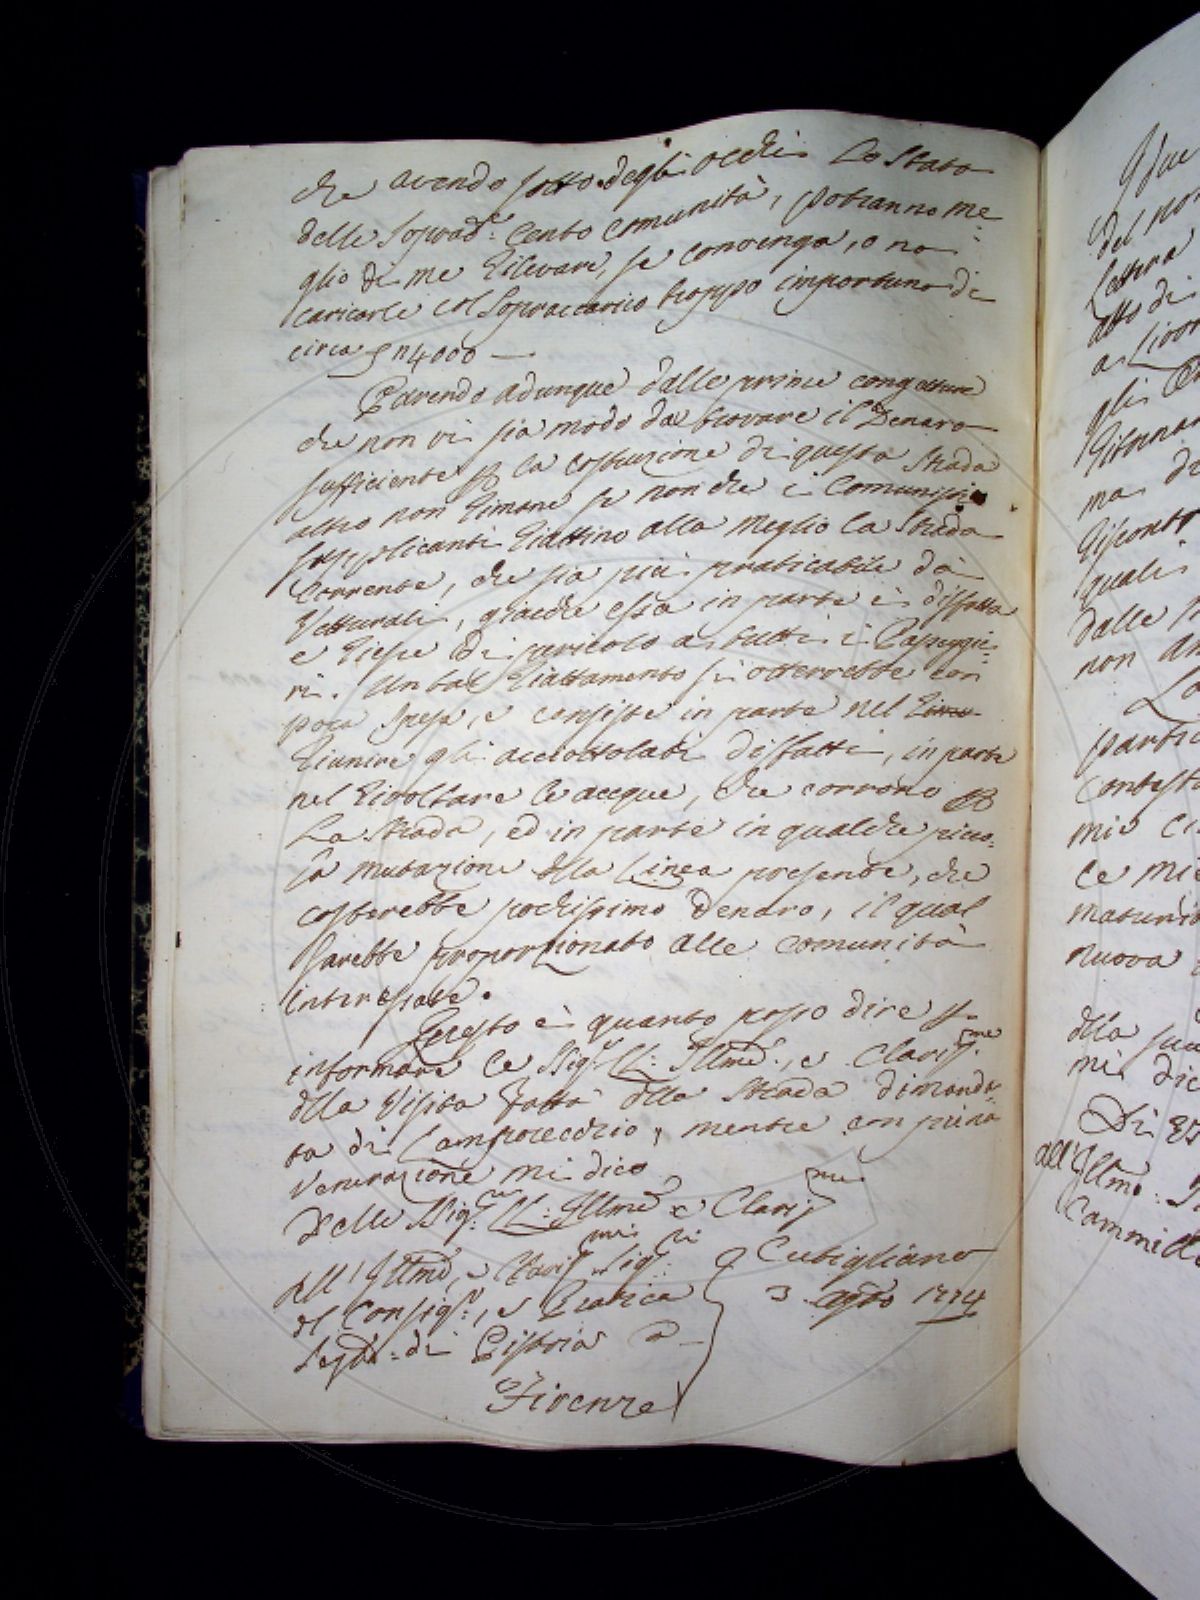 che avendo sotto degli occhi Lo Stato
delle soprad.e Cento Comunità, potranno me-
glio di me rilevare, se convenga, o no
caricarle col sopraccarico troppo importuno di
circa 4000 —
Parendo adunque dalle prime congetture
che non vi sia modo da trovare il Denaro
sufficiente la costruzione di questa Strada
altro non rimane se non che i Comunisti
supplicanti riattino alla meglio la Strada
corrente, che sia più praticabile da
Vetturali, giacche essa in parte è disfatta
e riesce di pericolo a tutti i Passeggie-
ri. Un tal riattamento si otterrebbe con
poca spesa, e consiste in parte nel
riunire gli acciottolati disfatti, in parte
nel rivoltare le acque, che corrono
La Strada, ed in parte in qualche picco-
la mutazione della Linea presente, che
costerebbe pochissimo Denaro, il qual
sarebbe proporzionato alle comunità
interessate.
Questo è quanto posso dire
informare le SSig.e LL. Illme., e Claris.me
della Visita fatta della Strada dimanda-
ta di Lamporecchio, mentre con piena
Venerazione mi dico
Delle SSig.rie LL. Illme e Claris.me
All' Illmi, e Claris.mi Sig.ri Cutigliano
del Consig., e Pratica 3 Agto 1774
Segta. di Pistoia
Firenze
Que
del
Lettera
atto di
a Livor
gli
Ritornan
ma di
quali
dalle
non
La
partic
mie
le mie
nuova
della sua
mi dic
Di
all' Illmo.
Cammill